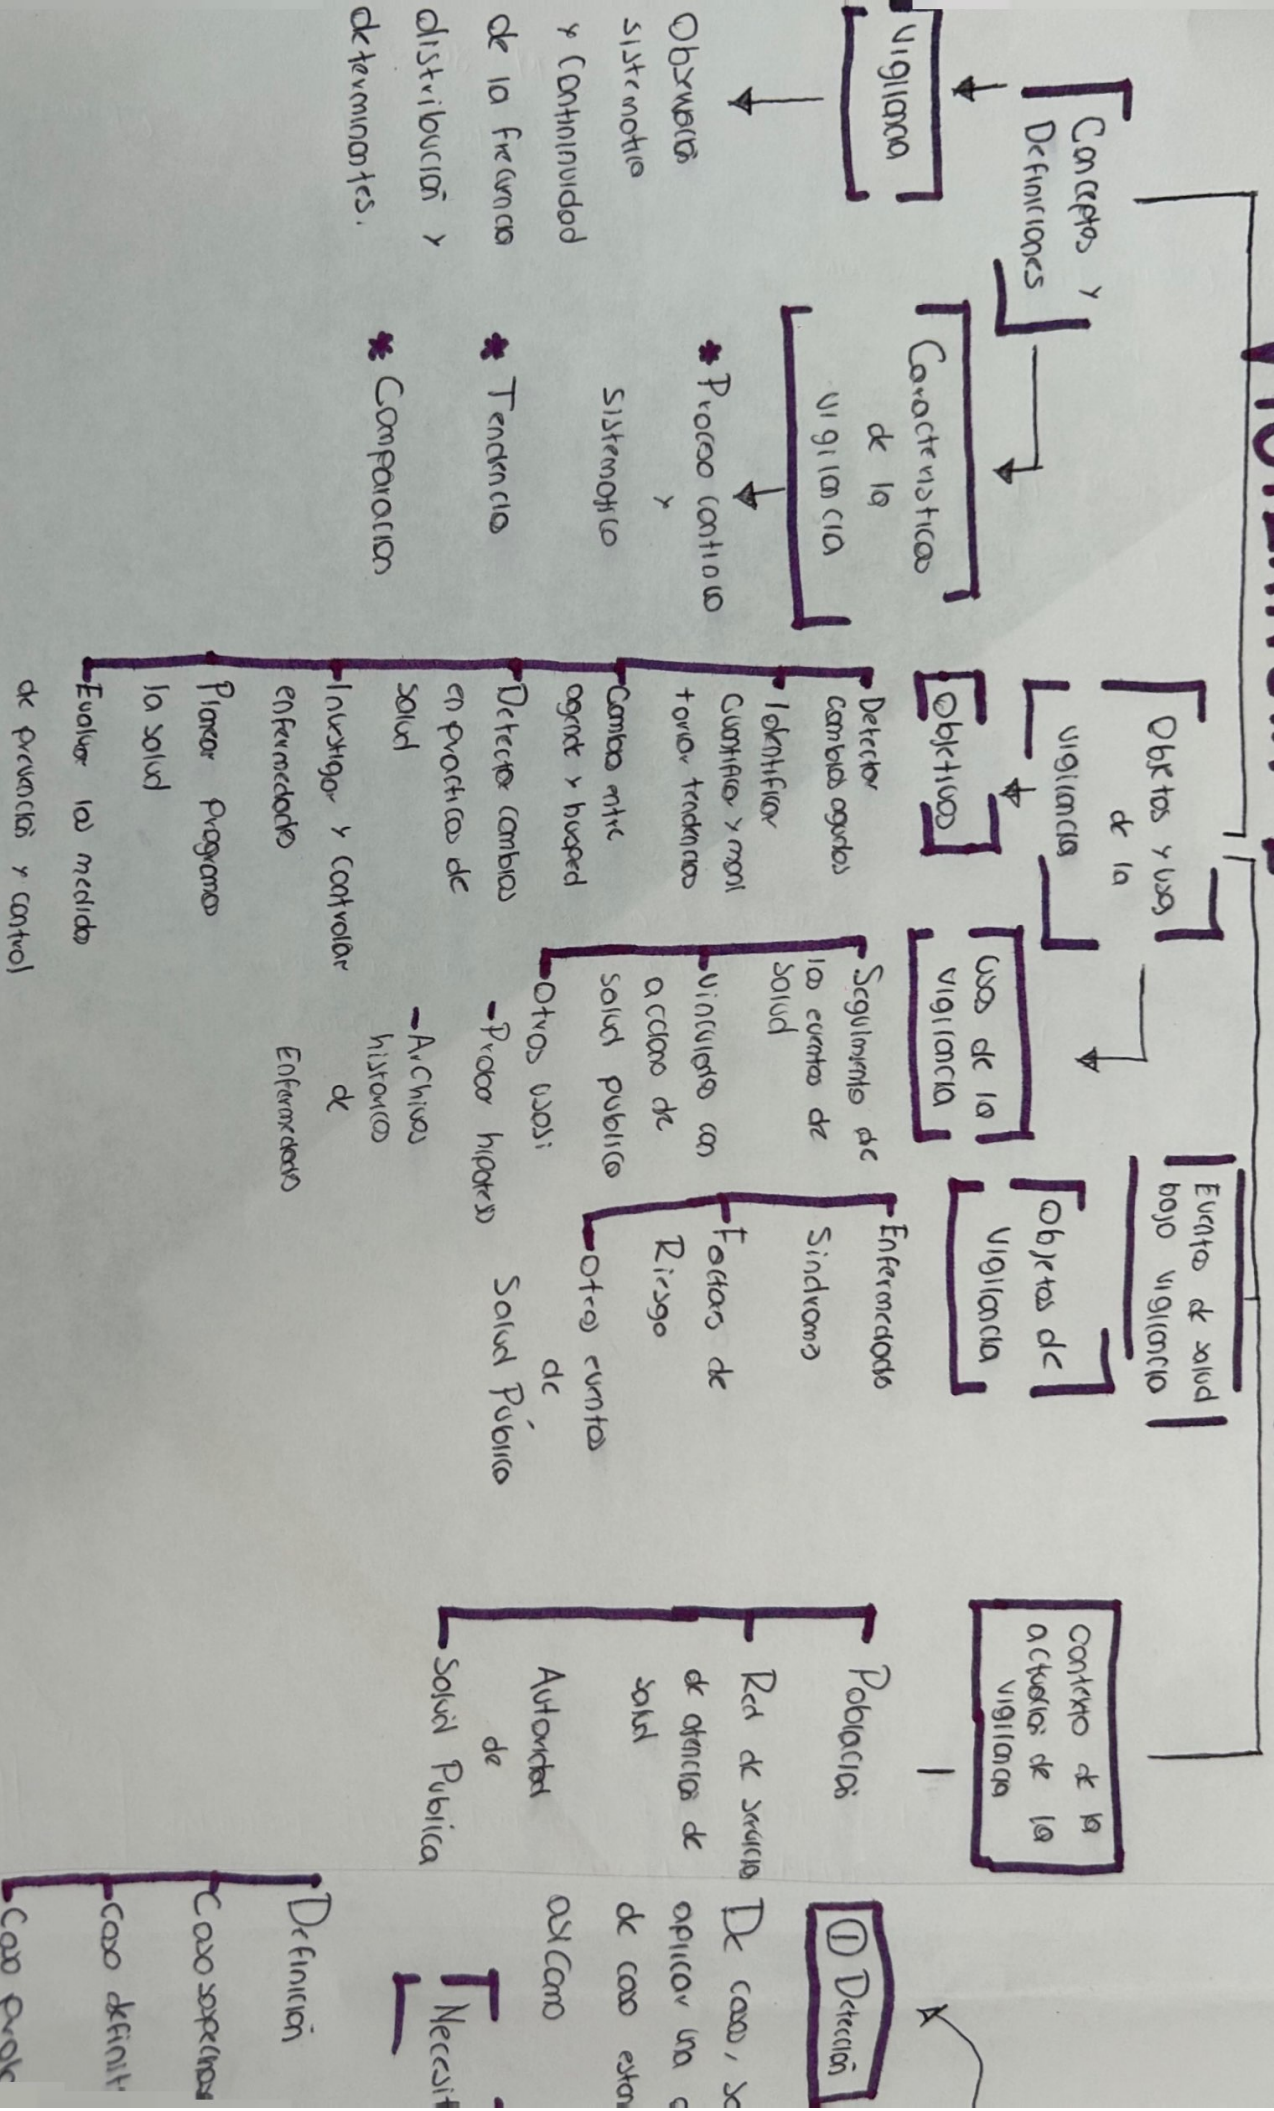 Conceptos y
Definiciones
Vigilancia
Observación
sistematica
y Contininuidad
de la frecuencia
distribución y
determinantes.
Caracteristicas
de la
vigilancia
* Proceso continuo
y
sistematico
* Tendencia
* Comparacion
Objetos y usos
de la
vigilancia
Objetivos
Detectar
cambios agudos
Identificar
cuantificar y moni
torear tendencias
Cambios entre
agente y huesped
Detectar cambios
en practicas de
salud
Investigar y controlar
enfermedades
Planear programas
la salud
Evaluar las medidas
de prevención y control
Usos de la
vigilancia
Seguimiento de
los eventos de
salud
Vincularlo con
acciones de
salud publica
Otros usos:
- Probar hipotesis
- Archivos
historicos
de
Enfermedades
Eventos de salud
bajo vigilancia
Objetos de
vigilancia
Enfermedades
Sindromes
Factores de
Riesgo
Otros eventos
de
Salud Pública
Contexto de la
actuación de la
vigilancia
Población
Red de servicios
de atención de
salud
Autoridad
de
Salud Publica
① Detección
De casos, se
aplicar una d
de caso estan
asi como
Necesit
Definición
Caso sospechos
Caso definit
Caso prob